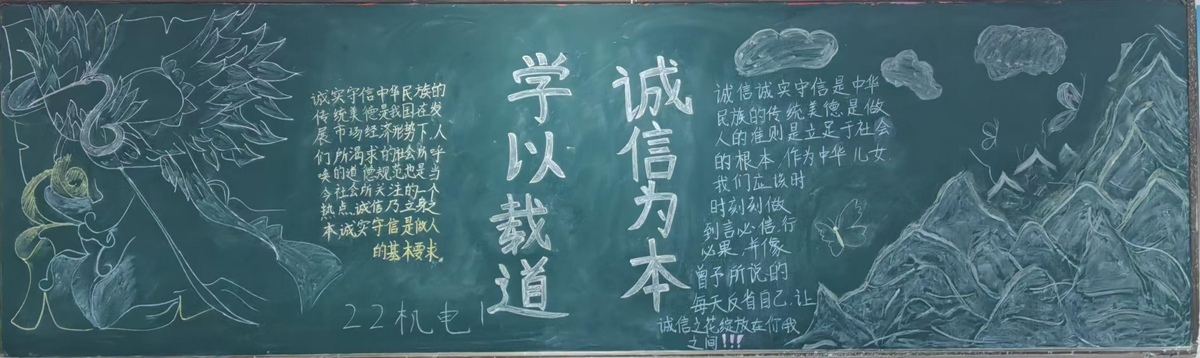 诚实守信中华民族的
传统美德是我国在发
展市场经济形势下,人
们所渴求的社会所呼
唤的道德规范也是当
今社会所关注的一个
热点、诚信乃立身之
本诚实守信是做人
的基本要求。
学以载道
诚信为本
诚信诚实守信是中华
民族的传统美德是做
人的准则是立足于社会
的根本,作为中华儿女
我们应该时
时刻刻做
到言必信,行
必果,并像
曾予所说的
每天反省自己,让
诚信之花绽放在你我
之间!!!
22机电1